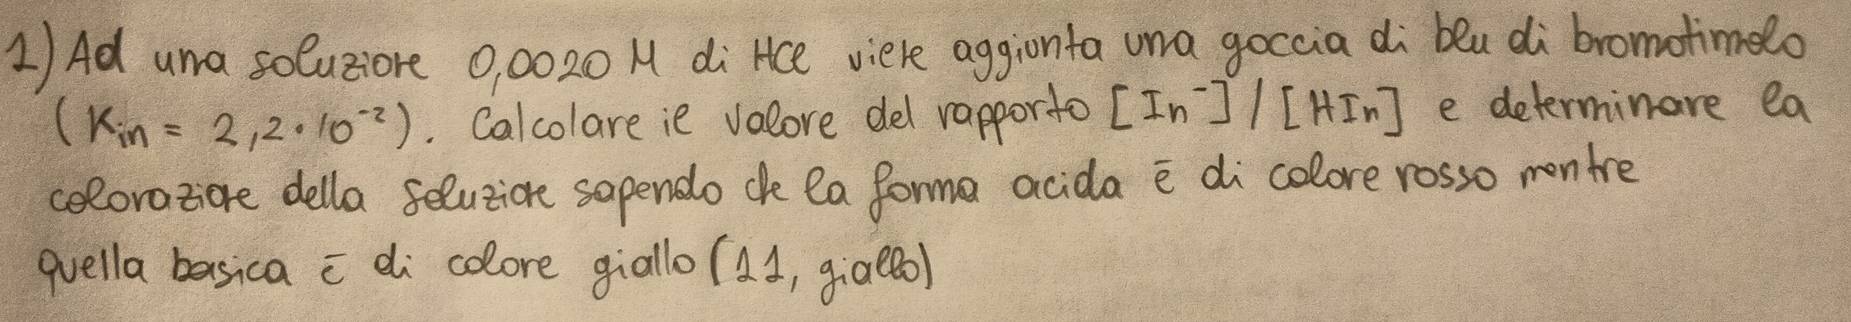 1) Ad una soluzione 0,0020 M di HCl viene aggiunta una goccia di blu di bromotimolo
(Kin = 2,2·10⁻²). Calcolare il valore del rapporto [In⁻]/[HIn] e determinare la
colorazione della soluzione sapendo che la forma acida è di colore rosso mentre
quella basica è di colore giallo (11, giallo)